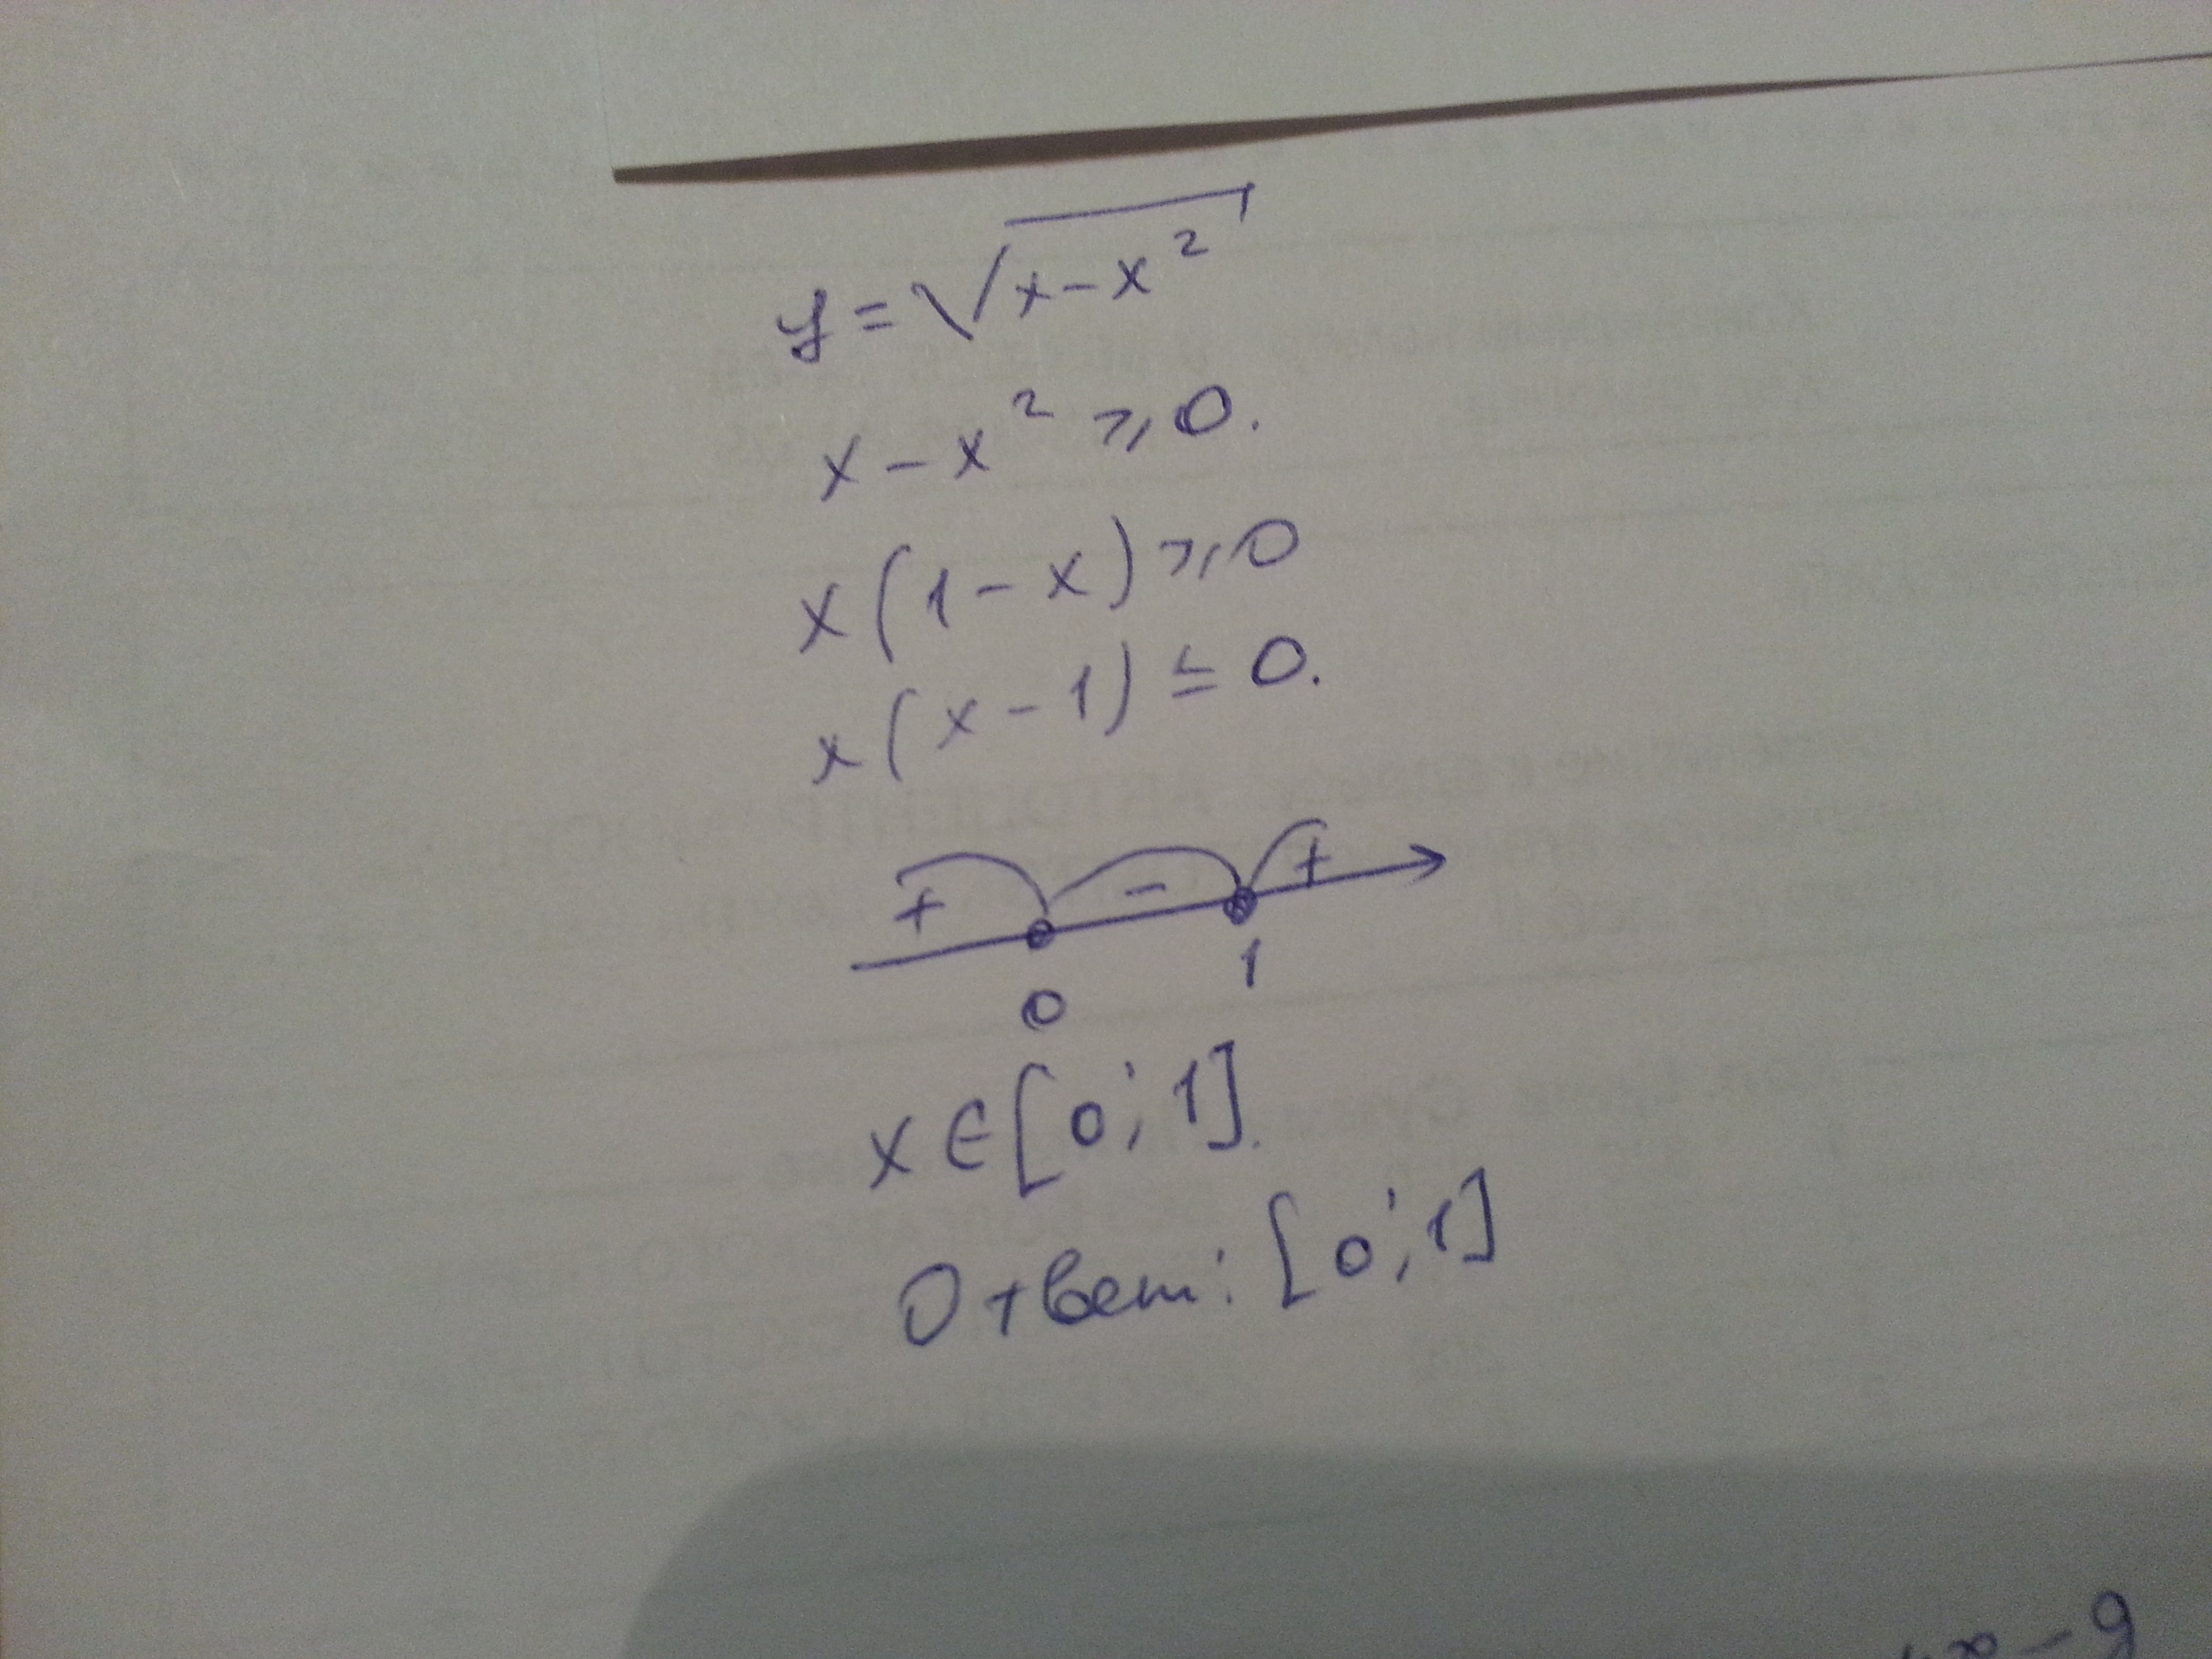 y = √x - x²
x - x² ⩾ 0.
x(1 - x) ⩾ 0
x(x - 1) ≤ 0.
+ - +
0 1
x ∈ [0; 1].
Ответ: [0; 1]